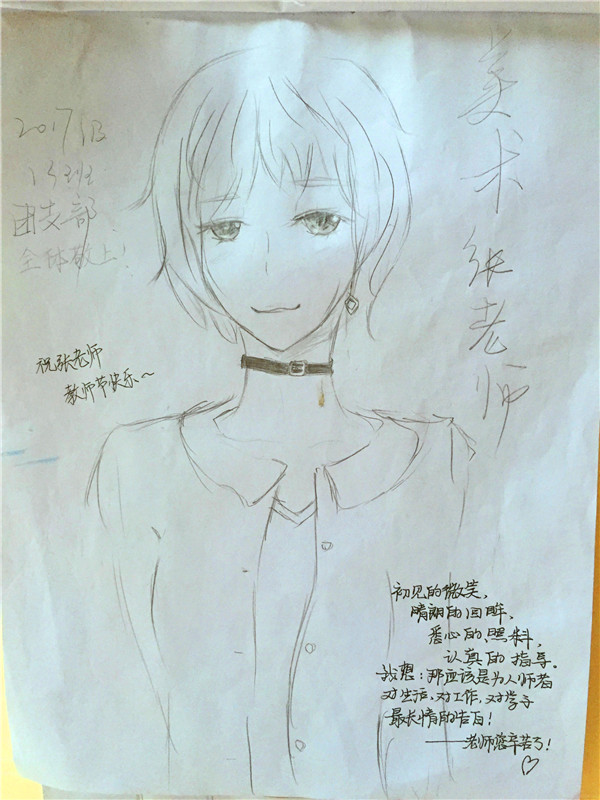 美术张老师
2017级
13班
团支部
全体敬上!
祝张老师
教师节快乐~
初见的微笑,
晴朗的回眸,
悉心的照料,
认真的指导。
我想:那应该是为人师者
对生活,对工作,对学子
最长情的告白!
——老师您辛苦了!